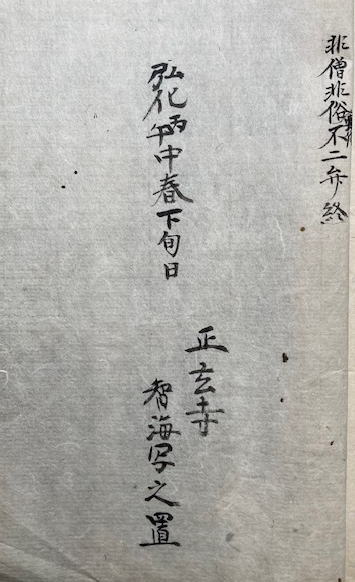 非僧非俗不二弁終
弘化丙午中春下旬日
正玄寺
智海写之置